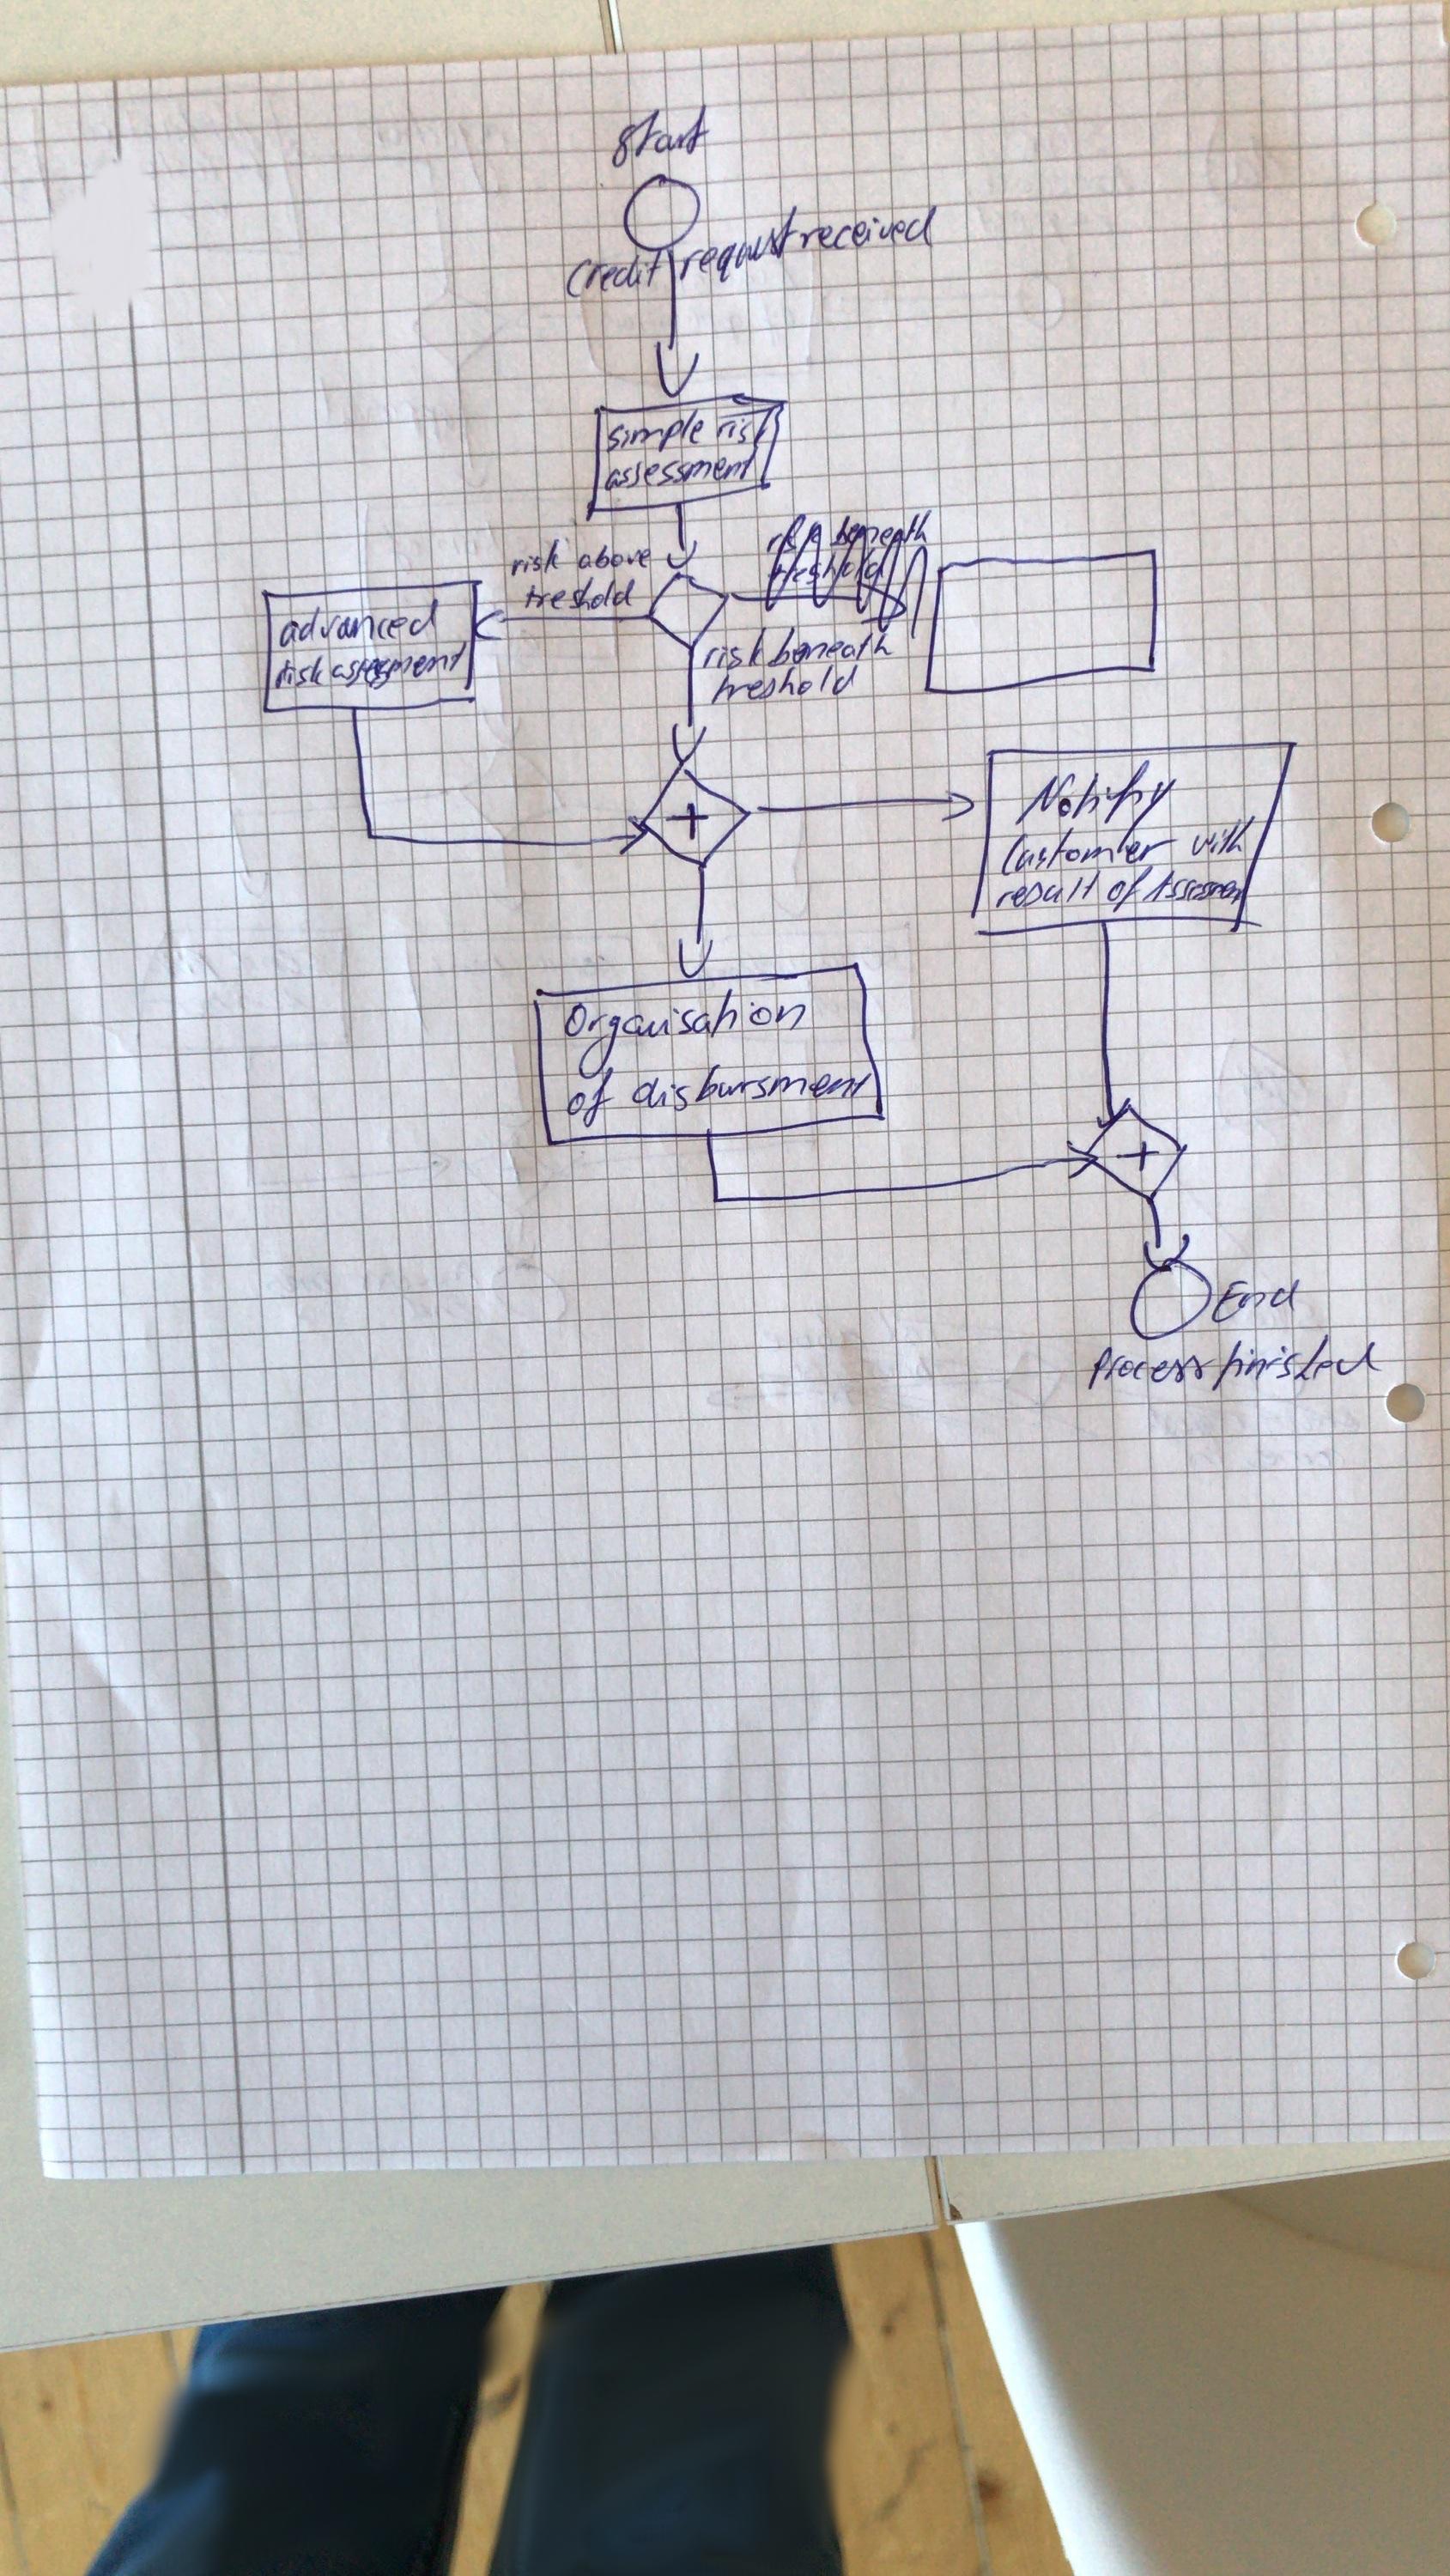 Start
Credit request received
simple risk
assessment
risk above
treshold
risk beneath
treshold
advanced
risk assessment
risk beneath
treshold
+
Notify
Customer with
result of Assessment
Organisation
of disbursment
+
End
Process finished